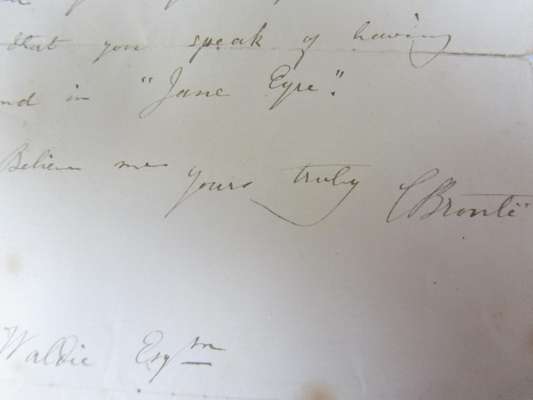 that you speak of having
nd in "Jane Eyre".
Believe me
yours truly
CBrontë
Waldie Esqre